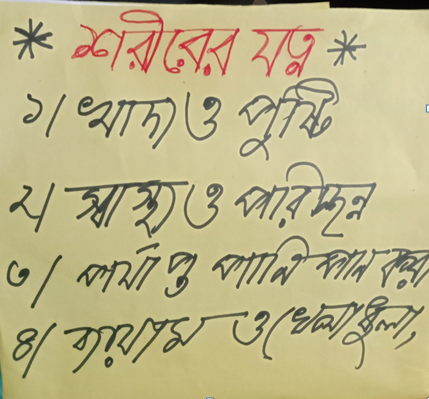 * শরীরের যত্ন *
১/ খাদ্য ও পুষ্টি
২/ স্বাস্থ্য ও পরিচ্ছন্ন
৩/ পর্যাপ্ত পানি পান করা
৪/ ব্যায়াম ও খেলাধুলা,